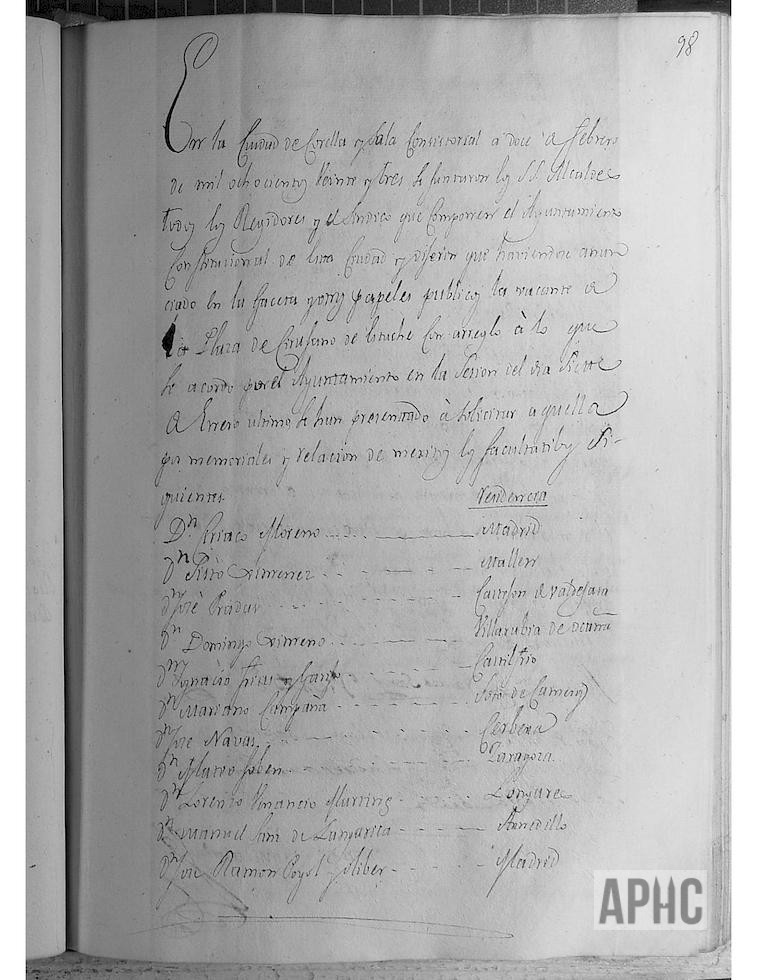 98
En la Ciudad de Corella y Sala Consistorial a doce de Febrero
de mil ochocientos veinte y tres se juntaron los SS. Alcaldes
todos los Regidores y el Sindico que componen el Ayuntamiento
Constitucional de esta Ciudad y dijeron que haviendose anun
ciado en la Gaceta y otros papeles publicos la vacante de
la Plaza de Cirujano de estuche con arreglo à lo que
se acordo por el Ayuntamiento en la Sesion del dia siete
de Enero ultimo, se han presentado à solicitar aquella
por memoriales y relacion de meritos los facultatibos Si-
guientes Residencia
Dn Ciriaco Moreno Madrid
Dn Ximenez Mallen
Dn José Pradas de Valdejasa
Dn Domingo Ximeno Villarubia de Ocaña
Dn Ignacio Castilfrio
Dn Mariano Campaña Soto de Cameros
Dn Jose Navas Cerbera
Dn Mateo Zaragoza
Dn Lorenzo Venancio Longares
Dn Manuel de Arnedillo
Dn José Ramon Madrid
APHC